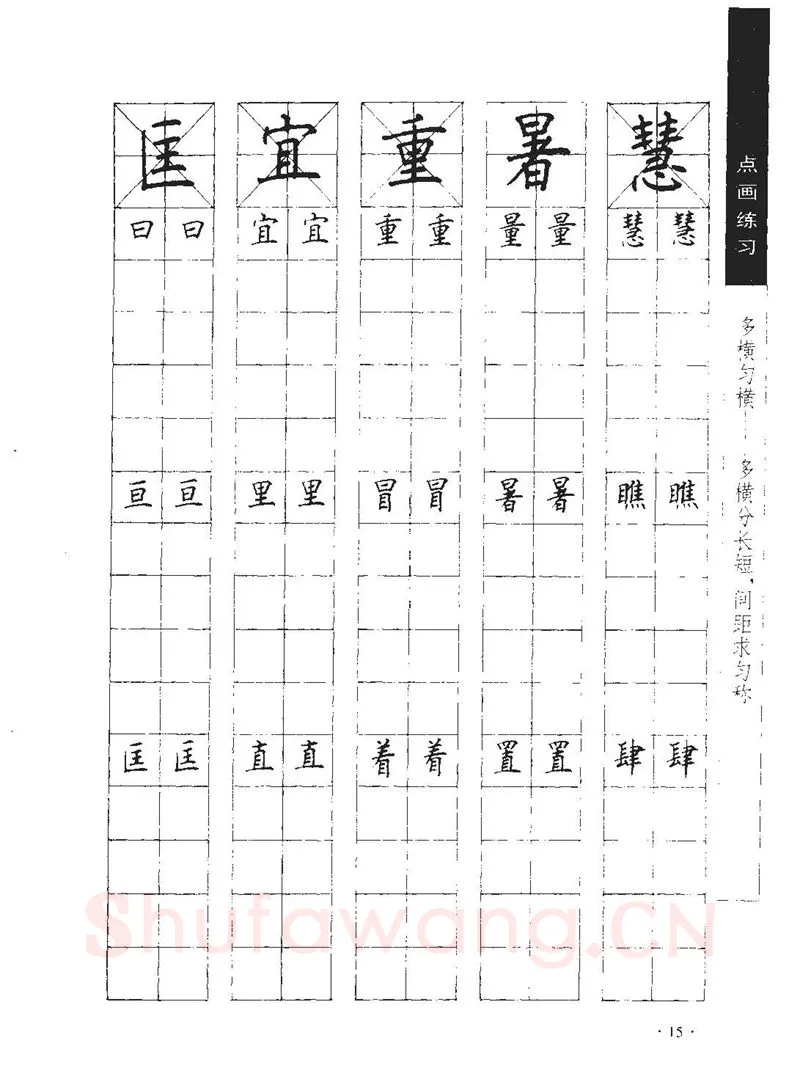 匡 宜 重 暑 慧
曰 曰 宜 宜 重 重 量 量 慧 慧
亘 亘 里 里 冒 冒 暑 暑 瞧 瞧
匡 匡 直 直 着 着 置 置 肆 肆
点画练习
多横匀横——多横分长短,间距求匀称
Shufawang.CN
·15·